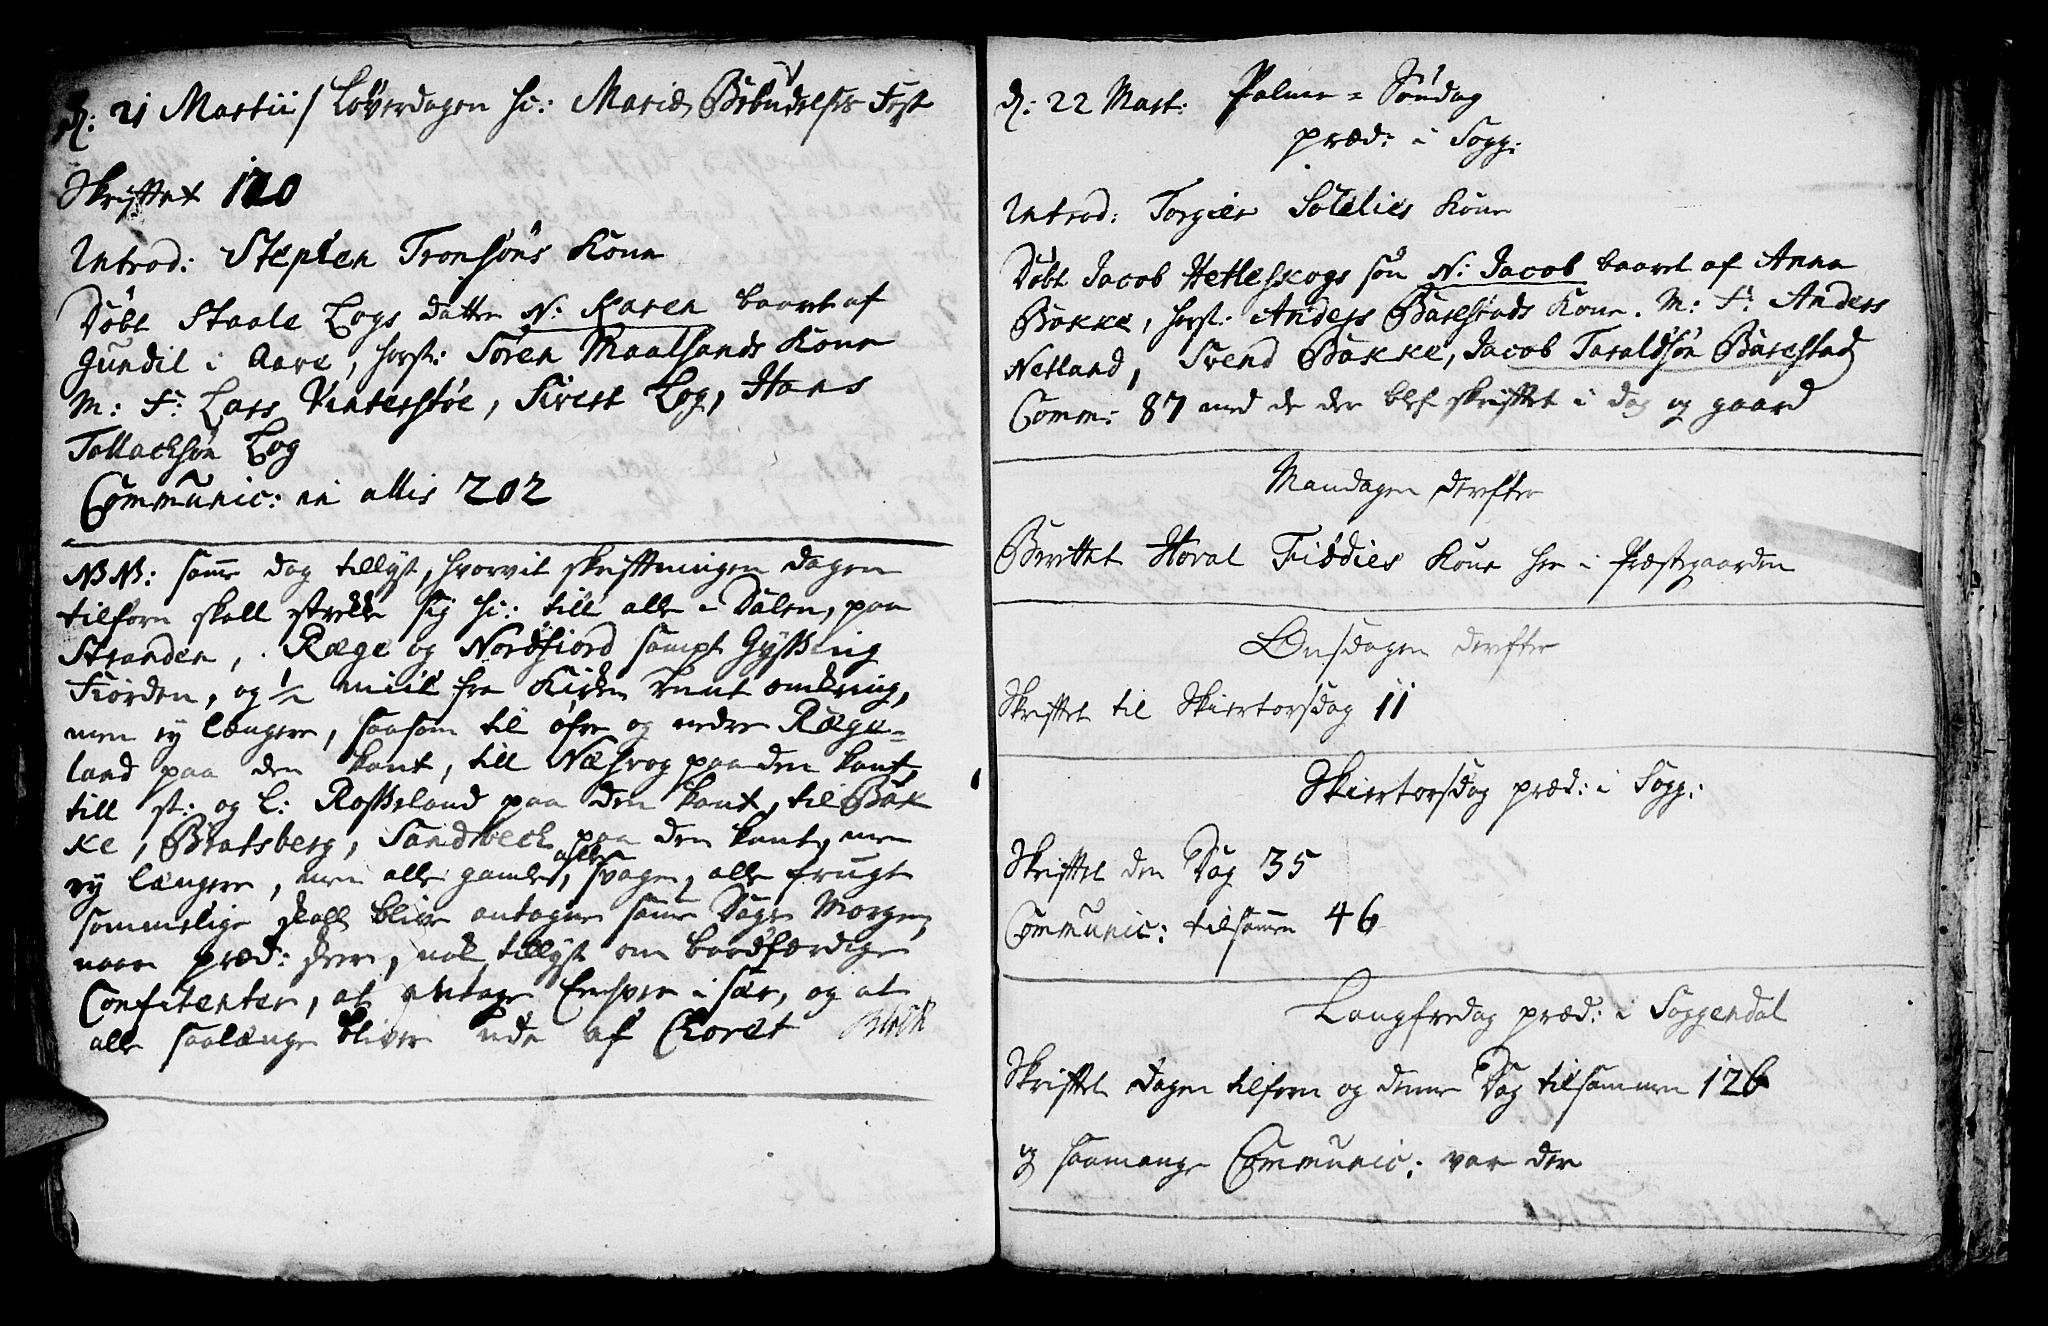 d: 21 Martii / Løverdagen hc: Mariæ Bebudelses Fest
Skrifftet 120
Introd: Stephen Tronsøns Kone
Døbt Staale Logs datter N: Karen baaret af
Gundil i Aare, hosst: Søren Maalsands Kone
M: F: Lars Vinterstøe, Sivert Log, Hans
Tollachsøn Log
Communic: in allis 202
NB NB: samme dag tillyst, hvorvit skrifftningen dagen
tilforn skall strekke sig hc: till alle i Dalen, paa
Stranden, Ræge og Nordfiord sampt Gyssing
Fiorden, og 1/2 miil fra Kirken runt omkring,
men ey længere, saasom til øfre og nedre Ræge-
land paa den kant, till Næsvog paa den kant,
till st: og l: Rosseland paa den kant, til Bak
ke, Bratsberg, Sandbeck paa den kant, men
ey længere, men alle gamle, alle svage, alle frugt
sommelige skall blive antagne samme Dags Morgen,
naar præd: skeer, nok tillyst om bodfærdige
Confitenter, at antage Enhver i sær, og at
alle saalænge bliver ude af Choret
d: 22 Mart: Palme = Søndag
præd: i Sogg:
Introd: Torgier Solelies Kone
Døbt Jacob Hetleskogs søn N: Jacob baaret af Anna
Bakke, hosst: Anders Barestads Kone. M: F: Anders
Netland, Svend Bakke, Jacob Taraldsøn Barestad
Comm: 87 med de der blef skrifftet i dag og gaard
Mandagen derefter
Berettet Horal Fiddies Kone her i Præstegaarden
Onsdagen derefter
Skrifftet til Skiertorsdag 11
Skiertorsdag præd: i Sogg:
Skrifftet den Dag 35
Communic: tilsammen 46
Langfredag præd: i Soggendal
Skrifftet dagen tilforn og denne Dag tilsammen 126
og saamange Communic: var der